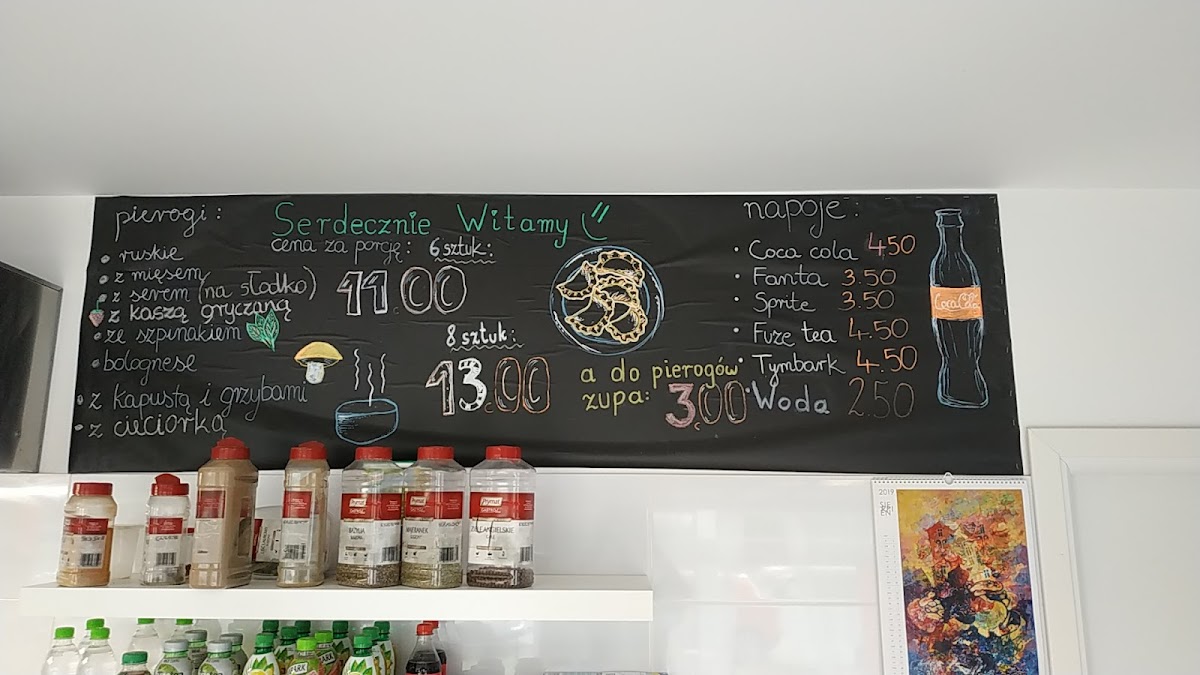 pierogi:
• ruskie
• z mięsem
• z serem (na słodko)
• z kaszą gryczaną
• ze szpinakiem
• bolognese
• z kapustą i grzybami
• z cieciorką
Serdecznie Witamy
cena za porcję: 6 sztuk:
11.00
8 sztuk:
13.00
a do pierogów
zupa: 3,00
napoje:
• Coca cola 4.50
• Fanta 3.50
• Sprite 3.50
• Fuze tea 4.50
• Tymbark 4.50
• Woda 2.50
Coca Cola
Prymat
Prymat
Prymat
BAZYLIA
MAJERANEK
ZIELE ANGIELSKIE
2019
SIERPIEŃ